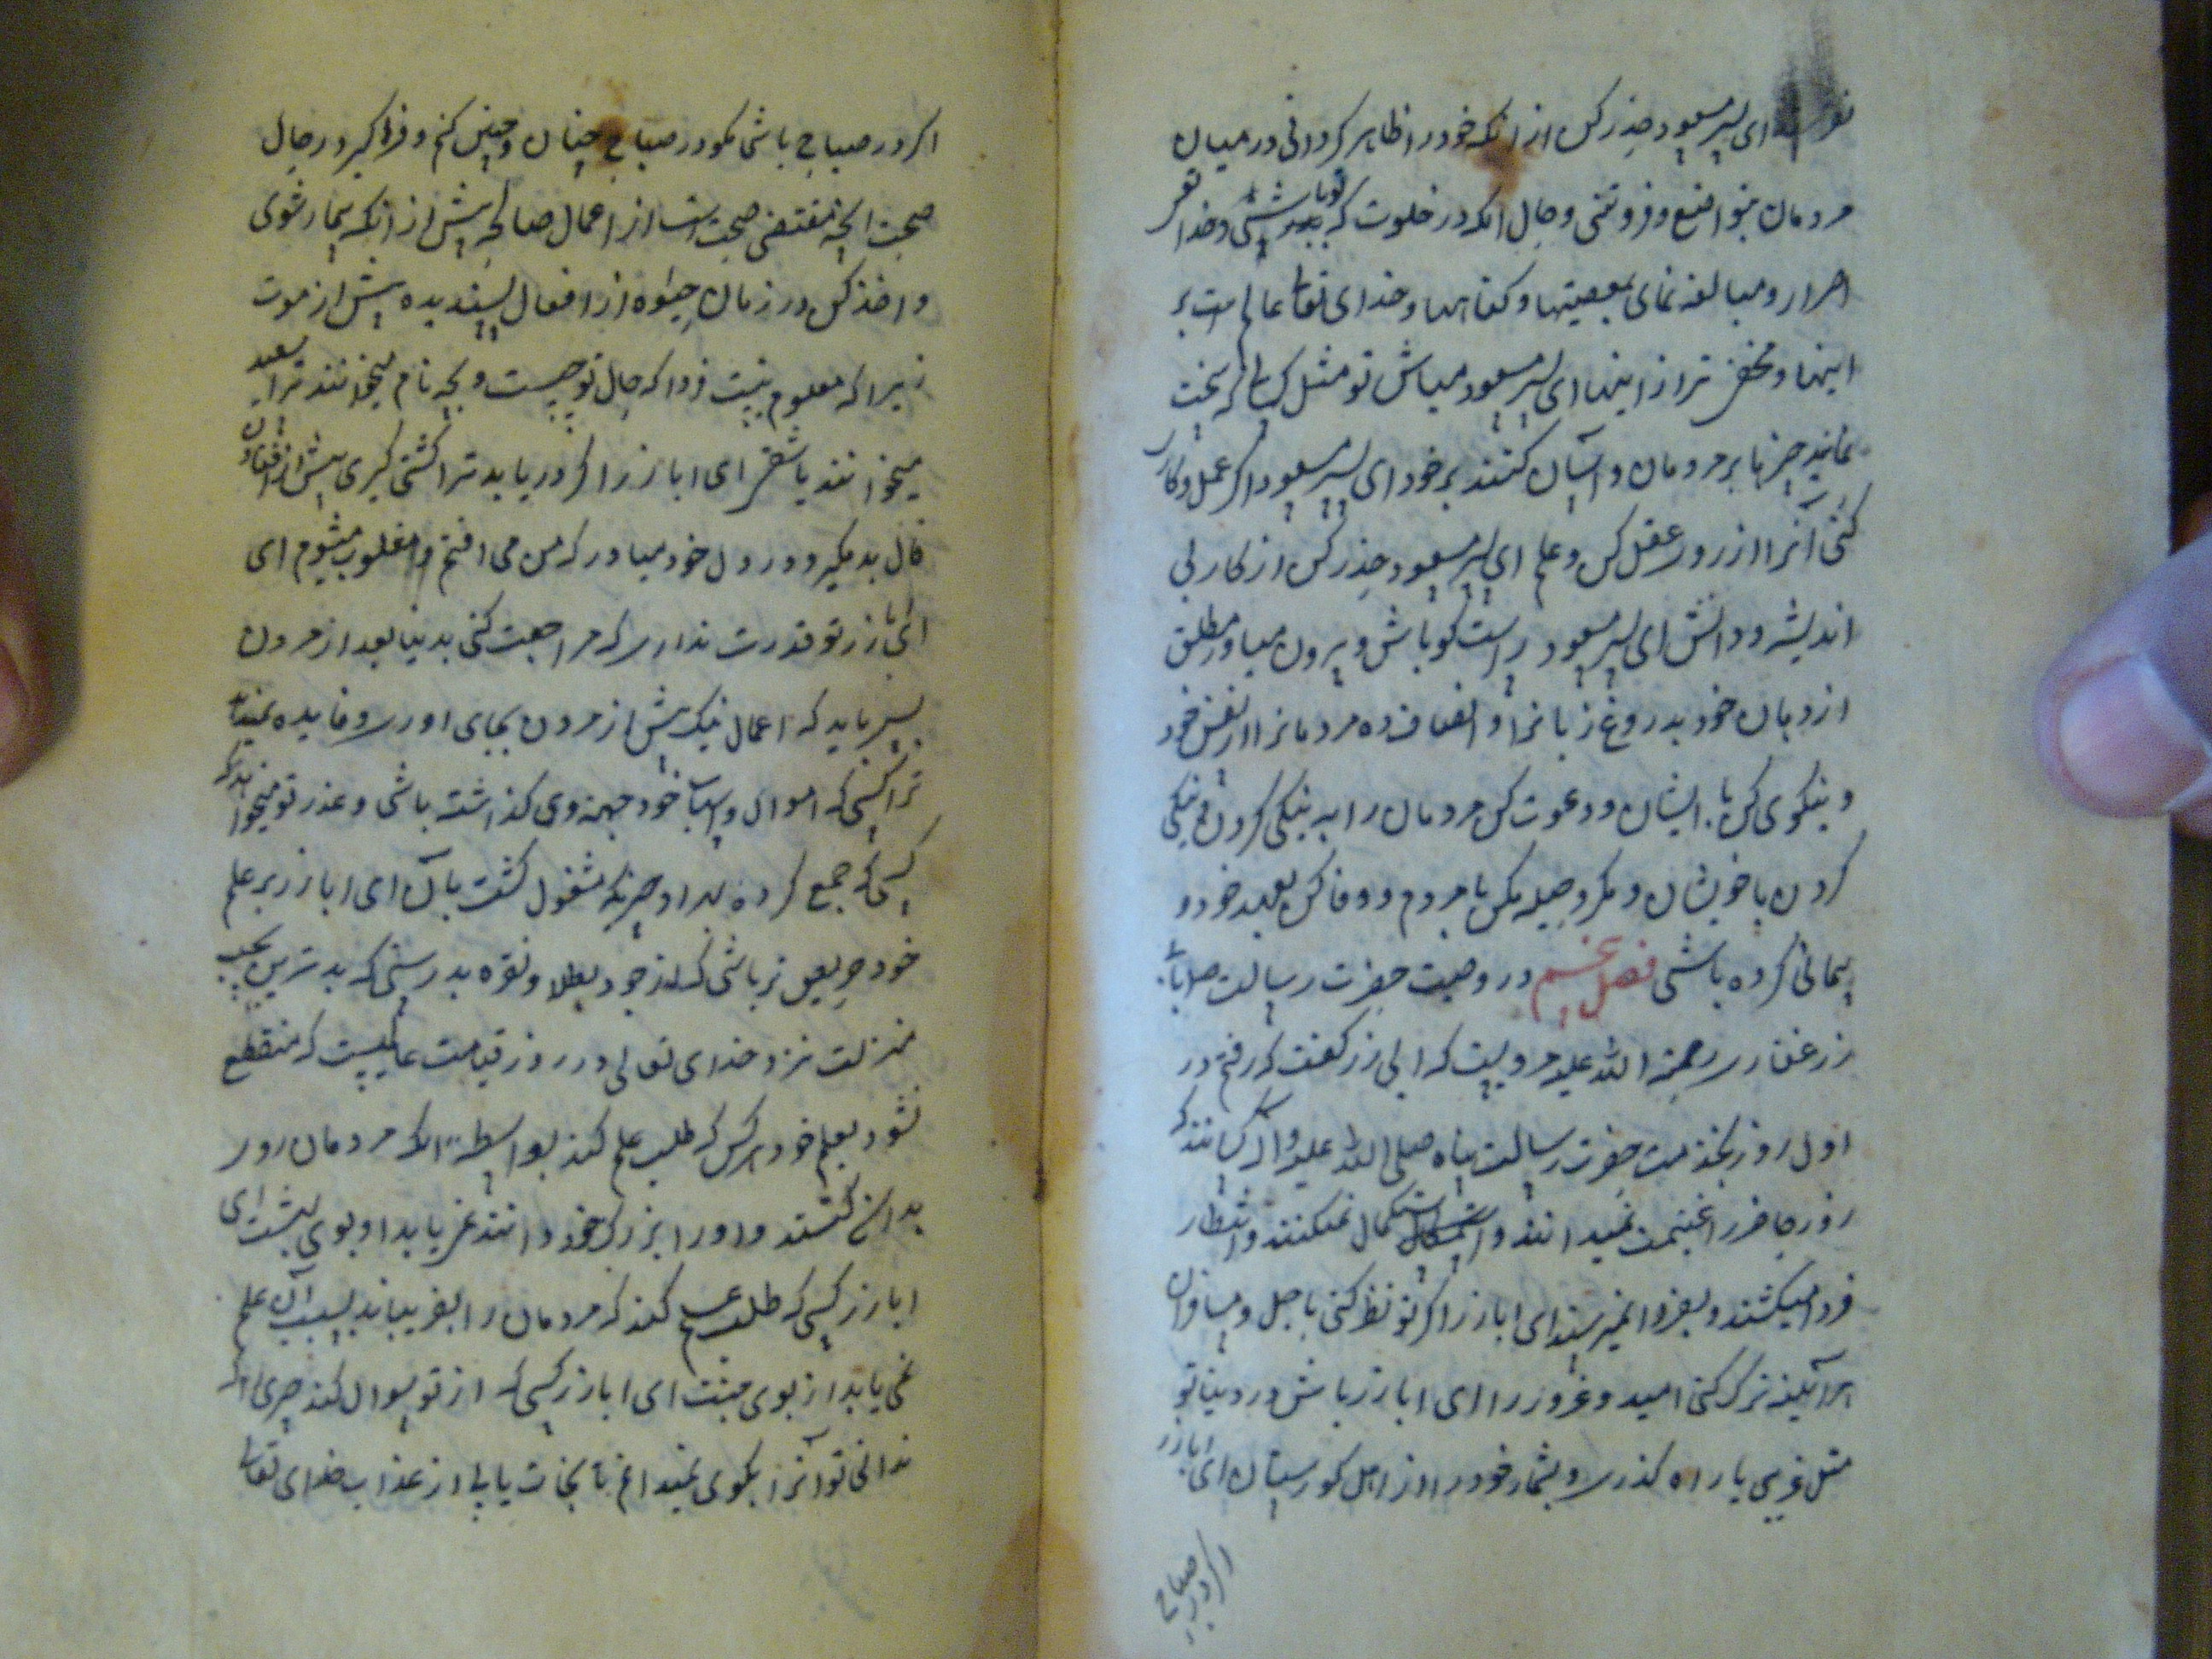 ای پسر مسعود حذر کن از آنکه خود را ظاهر گردانی در میان
مردمان بتواضع و فروتنی و حال آنکه در خلوت که تو باشی و خدا تو
اصرار و مبالغه نمای بمعصیتها و گناهها و خدای تعالی عالم است بر
اینها و مخفی تر از اینها ای پسر مسعود مباش تو مثل کسی که سخت
نمایند چیزها بر مردمان و آسان کنند بر خود ای پسر مسعود اگر عمل و کاری
کنی آنرا از روی عقل کن و علم ای پسر مسعود حذر کن از کار بی
اندیشه و دانش ای پسر مسعود راست گو باش و بیرون میاور مطلق
از دهان خود بدروغ زبانرا و انصاف ده مردمانرا از نفس خود
و نیکوی کن با ایشان و دعوت کن مردمان را به نیکی کردن و نیکی
کردن با خویشان و مکر و حیله مکن با مردم و وفا کن بعهد خود و
پیمانی کرده باشی فصل پنجم در وصیت حضرت رسالت
ذر غفاری رحمة الله علیه مرویست که ابی ذر گفت که رفتم در
اول روز بخدمت حضرت رسالت پناه صلی الله علیه و آله
روز حاضر را غنیمت نمیدانند و استکمال نمیکنند و انتظار
فردا میکشند و بفردا نمیرسند ای اباذر اگر تو نظر کنی باجل و
هر آینه ترک کنی امید و غرور را ای اباذر باش در دنیا تو
مثل غریبی یا راه گذری و بشمار خود را از اهل گورستان ای اباذر
اگر در صباح
اگر در صباح باشی مگو در صباح چنان و چنین کنم و فرا گیر در حال
صحت آنچه مقتضی صحت است از اعمال صالحه پیش از آنکه بیمار شوی
و اخذ کن در زمان حیوة از افعال پسندیده پیش از موت
زیرا که معلوم نیست فردا که حال تو چیست و بچه نام میخوانند ترا سعید
میخوانند یا شقی ای اباذر اگر دریابد ترا کشتی گیری پیش از افتادن
فال بد مگیر و در دل خود میاور که من می افتم و مغلوب میشوم ای
اباذر تو قدرت نداری که مراجعت کنی بدنیا بعد از مردن
پس باید که اعمال نیک پیش از مردن بجای آوری و فایده نمیدهد
ترا کسی که اموال و اسباب خود جهة وی گذاشته باشی و عذر تو
کسی که جمع کرده مشغول گشت بآن ای اباذر بر علم
خود حریص تر باشی که از خود بطلا و نقره بدرستی که بدترین
منزلت نزد خدای تعالی در روز قیامت عالمیست که منتفع
نشود بعلم خود هر کس که طلب علم کند بواسطه آنکه مردمان روی
بدان کنند و او را بزرگ خود دانند نمی یابد او بوی بهشت ای
اباذر کسی که طلب علم کند که مردمان را بفریباند بسبب آن علم
نمی یابد از بوی جنت ای اباذر کسی که از تو سوال کند چیزی که
ندانی تو آنرا بگوی نمیدانم تا نجات یابی از عذاب خدای تعالی